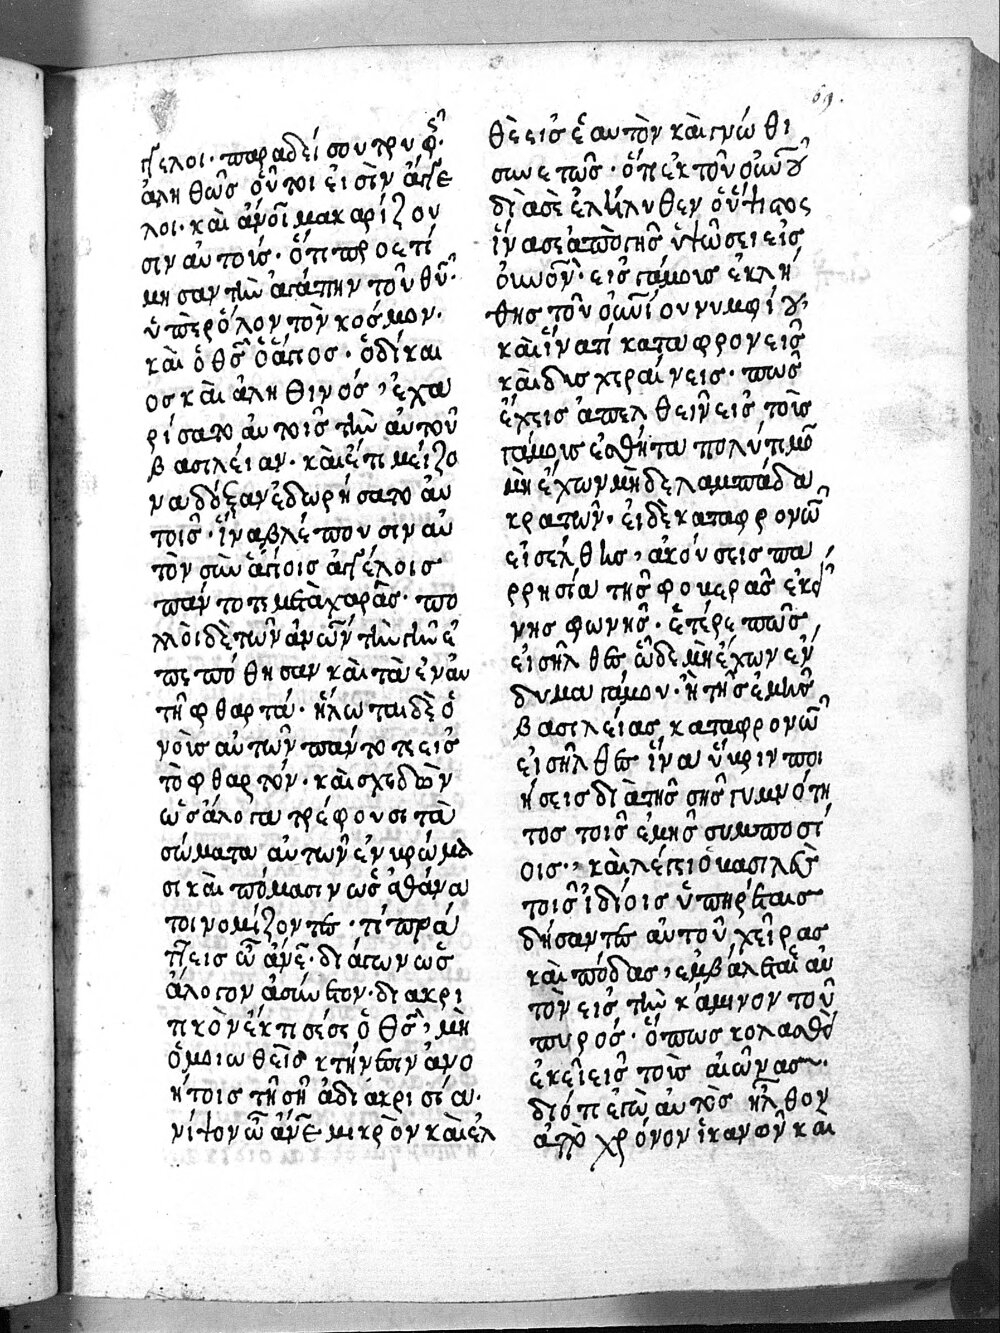 69.
γγελοι· παραδείσου τρυφῆς·
ἀληθῶς οὗτοι εἰσὶν ἄγγε
λοι· καὶ ἀνοι μακαρίζου
σιν αὐτοίς· ὅτι προετί
μησαν τὴν ἀγάπην τοῦ θυ·
ὑπὲρ ὅλον τὸν κόσμον·
καὶ ὁ θς ὁ ἅγιος· ὁ δίκαι
ος καὶ ἀληθινός, ἐχα
ρίσατο αὐτοῖς τὴν αὐτοῦ
βασιλείαν· καὶ ἔτι μείζο
να δόξαν ἐδωρήσατο αὐ
τοῖς· ἵνα βλέπουσιν αὐ
τὸν σὺν ἁγίοις ἀγγέλοις
πάντοτε μετὰ χαρᾶς· πο
λλοὶ δὲ τῶν ἀνων τὴν γῆν ἐ
πεπόθησαν καὶ τὰ ἐν αὐ
τῇ φθαρτά· ἡλωται δὲ ὁ
νοῦς αὐτῶν πάντοτε εἰς
τὸ φθαρτόν· καὶ σχεδὸν
ὡς ἄλογα τρέφουσι τὰ
σώματα αὐτῶν ἐν βρώμα
σι καὶ πόμασιν ὡς ἀθάνα
τοι νομίζοντες· τί πρά
ττεις ὦ ἄνε· διάγων ὡς
ἄλογον ἀσώετον· διακρι
τικὸν ἔκτισέ σε ὁ θς, μὴ
ὁμοιωθεὶς κτήνεσιν ἀνο
ήτοις τῇ σῇ ἀδιακρισία·
νίψον ὦ ἄνε μικρὸν καὶ ἐλ
θὲ εἰς ἑαυτὸν καὶ γνώθι
σωετῶς· ὅτι ἐκ τῶν οὐνῶν
διὰ σὲ ἐλήλυθεν ὁ ὕψιστος
ἵνα σε ἀπὸ γῆς ὑψώσει εἰς
οὐνον· εἰς γάμους ἐκλή
θης τοῦ οὐνίου νυμφίου,
καὶ ἵνα τί καταφρονεῖς
καὶ δυσχεραίνεις· πῶς
ἔχεις ἀπελθεῖν εἰς τοὺς
γάμους ἐσθήτα πολύτιμον
μὴ ἔχων μὴδε λαμπάδα
κρατῶν· εἰ δὲ καταφρονῶν
εἰσέλθης, ἀκούσεις πα
ρρησία τῆς φοβερᾶς ἐκεί
νης φωνῆς· ἑτέρε πῶς
εἰσῆλθες ὧδε μὴ ἔχων ἔν
δυμα γάμου· ἢ τῆς ἐμῆς
βασιλείας καταφρονῶν
εἰσῆλθες ἵνα ὕβριν ποι
ήσεις διὰ τῆς σῆς γυμνότη
τος τοῖς ἐμῆς συμποσί
οις·, καὶ λέγει ὁ βασιλεὺς
τοῖς ἰδίοις ὑπηρέταις
δήσαντες αὐτοῦ χεῖρας
καὶ πόδας, ἐμβάλεται αὐ
τὸν εἰς τὴν κάμινον τοῦ
πυρός· ὅπως κολασθῆ
ἐκεῖ εἰς τοὺς αἰῶνας~·
διότι ἐπ αυτοὺς ἦλθον
ἀπὸ χρόνον ἱκανῶν καὶ